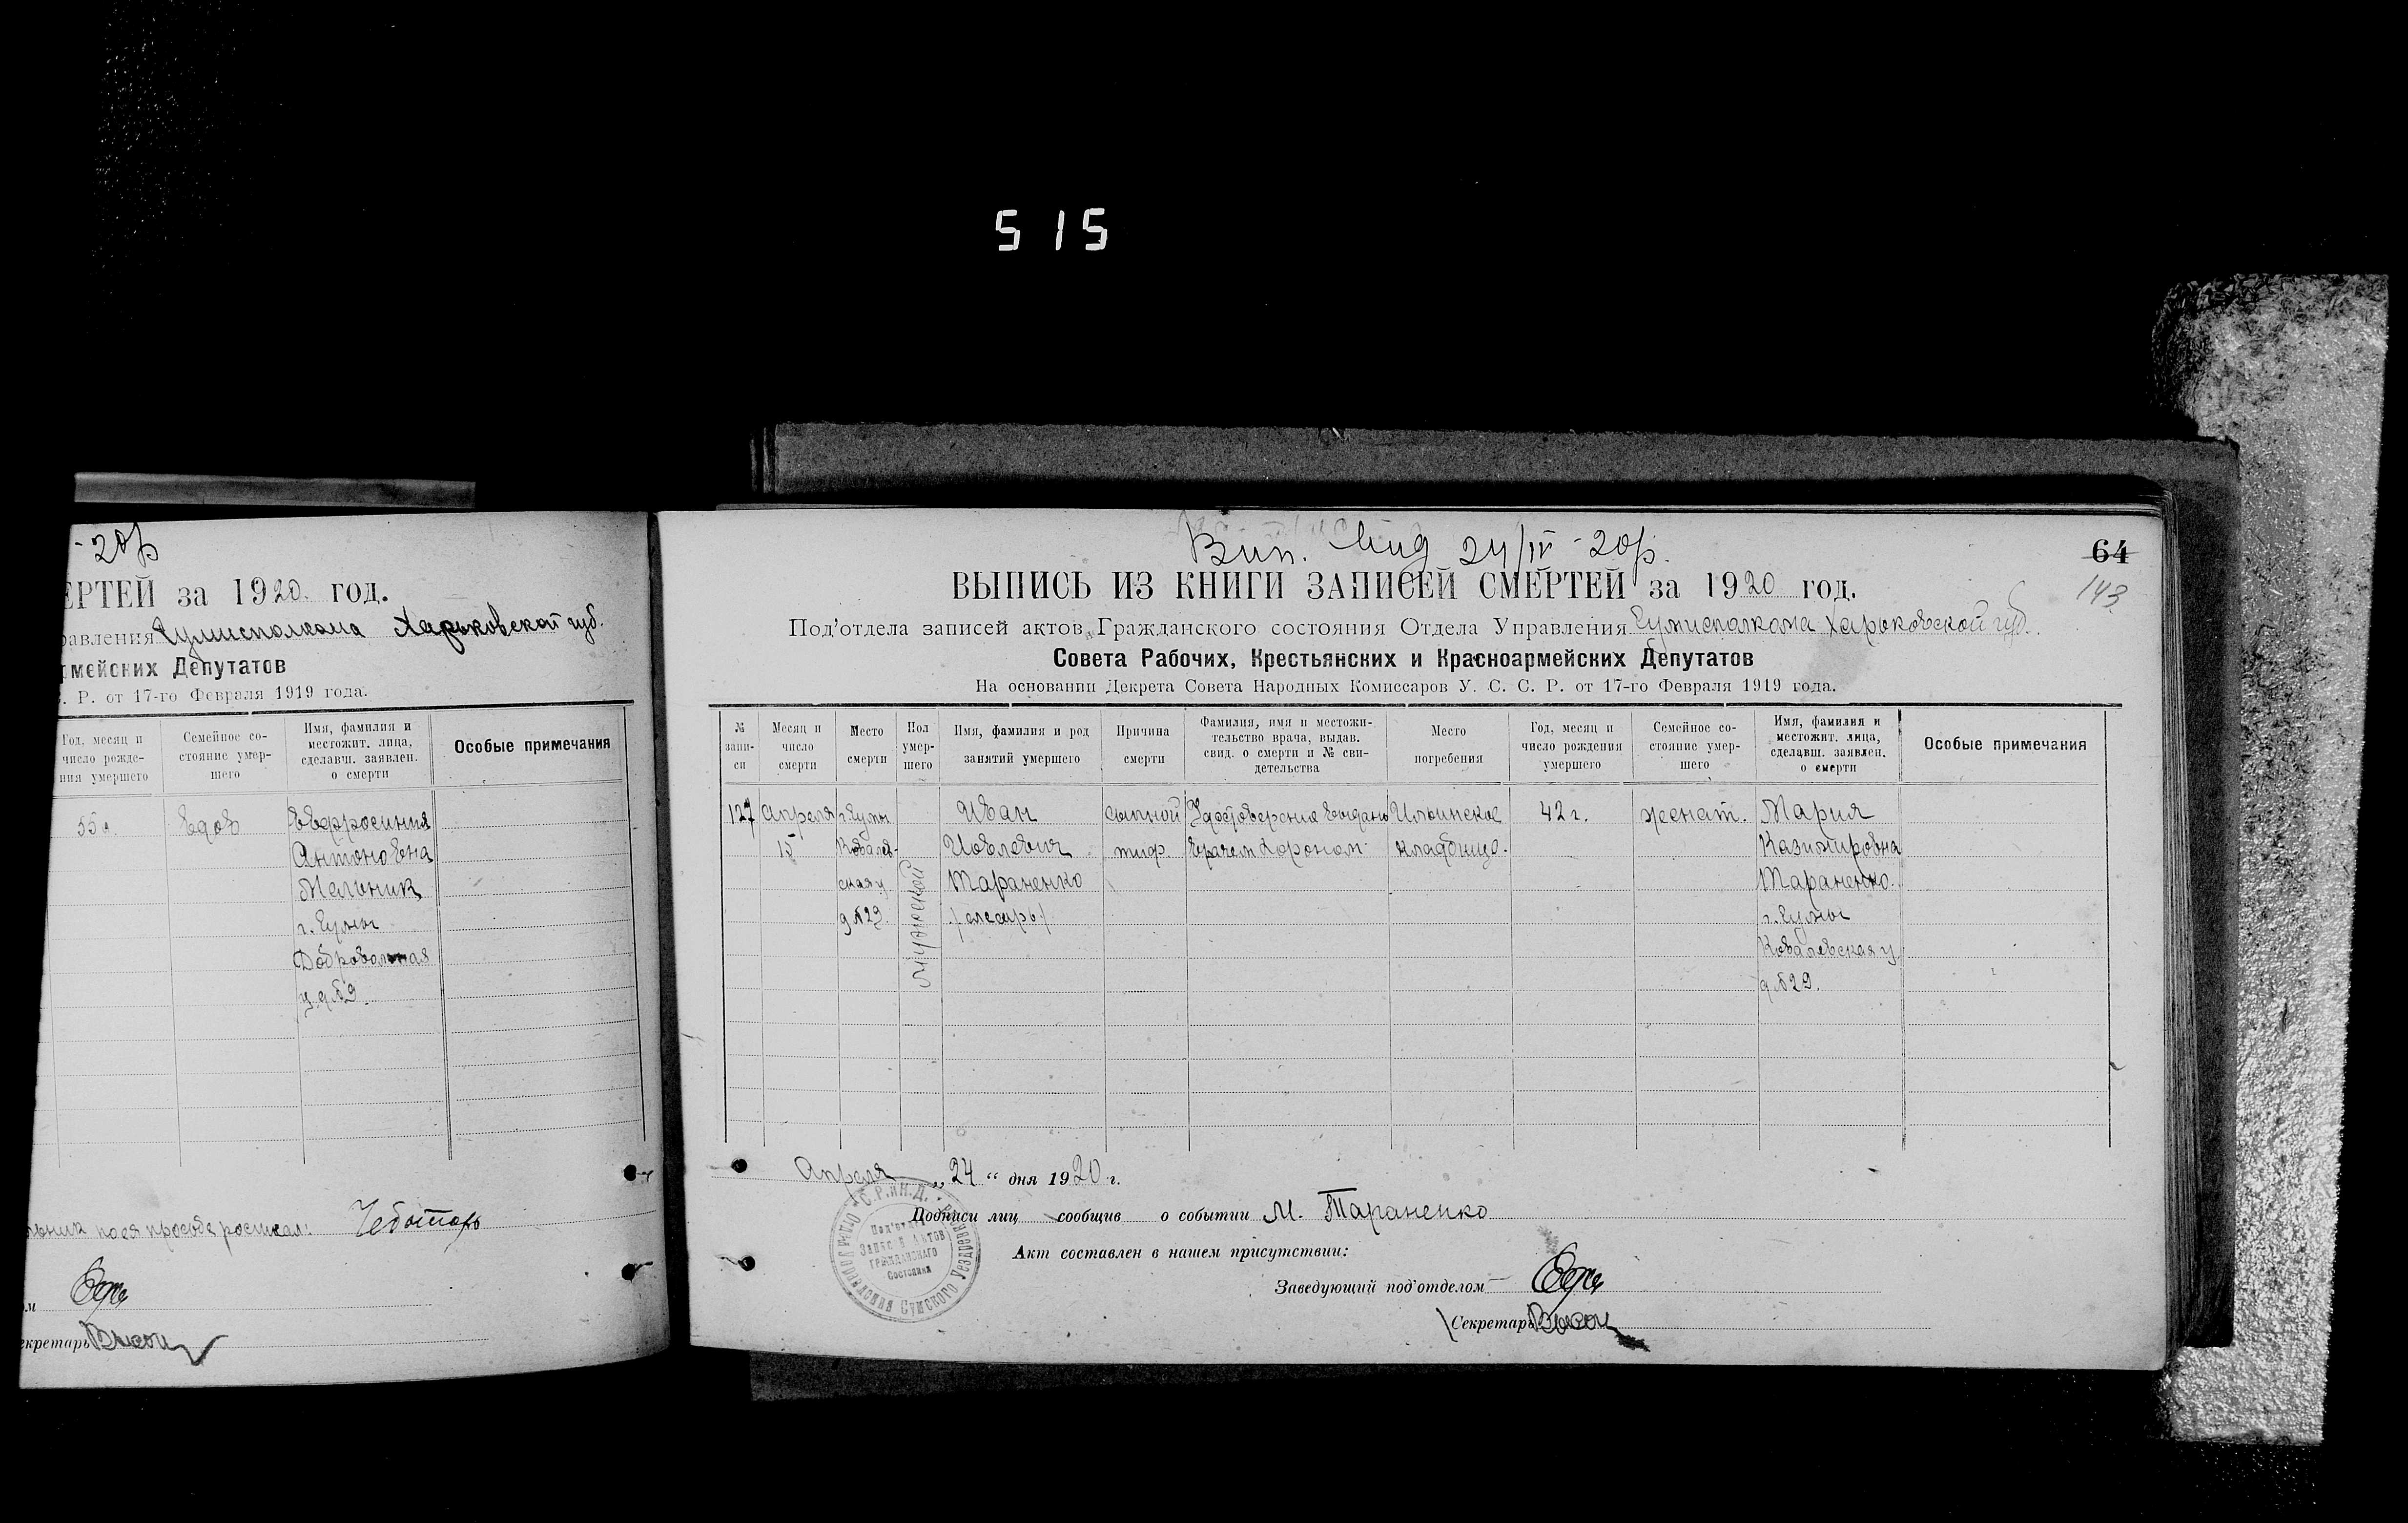 515
- 20р
ЕРТЕЙ за 1920 год.
равления Сумисполкома Харьковской губ.
рмейских Депутатов
С. Р. от 17-го Февраля 1919 года.
Год, месяц и число рожде- ния умершего
Семейное со- стояние умер- шего
Имя, фамилия и местожит. лица, сделавш. заявлен. о смерти
Особые примечания
55 л.
вдов
Евфросиния
Антоновна
Мельник
г. Сумы
Добровольная
у. д № 9.
Чеботарь
ом
екретарь
64
143
Вип. 24/IV - 20р.
ВЫПИСЬ ИЗ КНИГИ ЗАПИСЕЙ СМЕРТЕЙ за 1920 год.
Под'отдела записей актов Гражданского состояния Отдела Управления Сумисполкома Харьковской губ.
Совета Рабочих, Крестьянских и Красноармейских Депутатов
На основании Декрета Совета Народных Комиссаров У. С. С. Р. от 17-го Февраля 1919 года.
№ запи- си
Месяц и число смерти
Место смерти
Пол умер- шего
Имя, фамилия и род занятий умершего
Причина смерти
Фамилия, имя и местожи- тельство врача, выдав. свид. о смерти и № сви- детельства
Место погребения
Год, месяц и число рождения умершего
Семейное со- стояние умер- шего
Имя, фамилия и местожит. лица, сделавш. заявлен. о смерти
Особые примечания
127
Апреля
15
г. Сумы
Ковалев-
ская у
д № 29.
мужской
Иван
Иовлевич
Тараненко
/слесарь/
сыпной
тиф.
Удостоверение выдано
врачем
Ильинское
кладбище.
42 г.
женат.
Мария
Казимировна
Тараненко.
г. Сумы
Ковалевская у.
д № 29.
Апреля „24“ дня 1920 г.
Подписи лиц сообщив о событии М. Тараненко
Акт составлен в нашем присутствии:
Заведующий под'отделом
Секретарь
С.Р. и К.Д.
Под'отдел
Записей Актов
Гражданскаго
Состояния
Отдел Управления Сумского Уезд